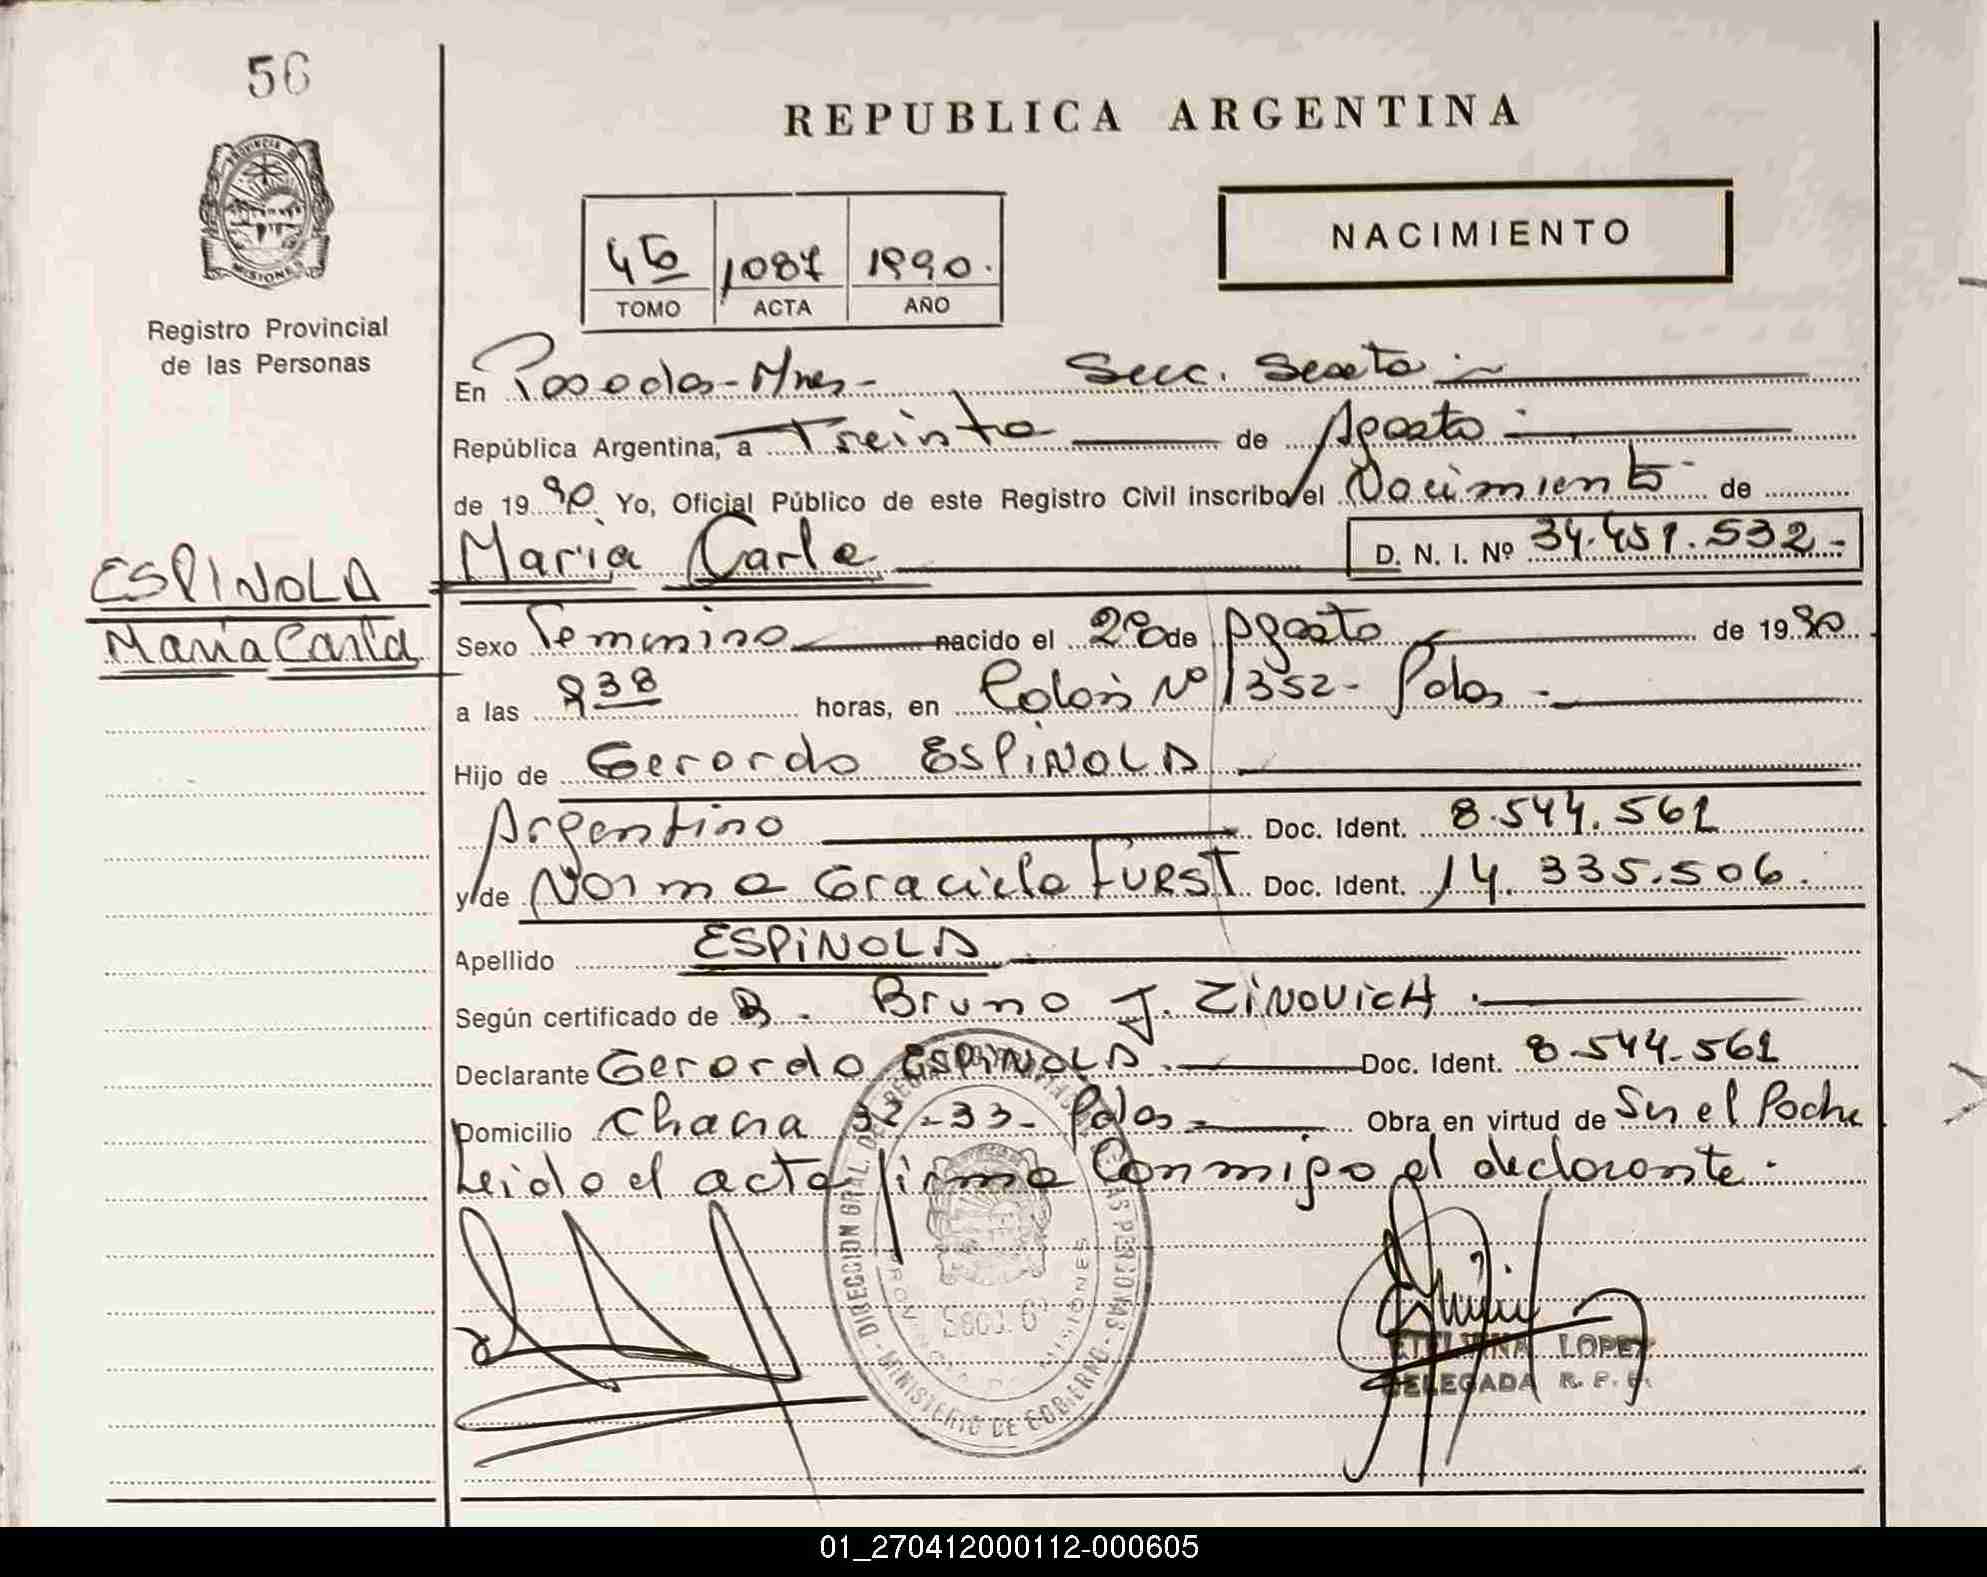 56
REPUBLICA ARGENTINA
PROVINCIA DE
MISIONES
Registro Provincial
de las Personas
NACIMIENTO
4to 1087 1990.
TOMO ACTA AÑO
En Posadas - Mnes - Secc. Sexta
República Argentina, a Treinta de Agosto
de 1990 Yo, Oficial Público de este Registro Civil inscribo el Nacimiento de
Maria Carla D. N. I. Nº 34.451.532-
ESPINOLA
Maria Carla
Sexo Femenino nacido el de Agosto de 1990
a las 838 horas, en Colón Nº 1352 - Pdas -
Hijo de Gerardo ESPINOLA
Argentino Doc. Ident. 8.544.561
y de Norma Graciela FÜRST Doc. Ident. 14.335.506.
Apellido ESPINOLA
Según certificado de Bruno J. ZINOVICH.
Declarante Gerardo ESPINOLA. Doc. Ident. 8.544.561
Domicilio Chacra 32-33- Pdas Obra en virtud de Ser el Padre
Leido el acta firma conmigo el declarante.
DIRECCION GRAL. DEL REGISTRO DE LAS PERSONAS - MINISTERIO DE GOBIERNO -
PROVINCIA DE MISIONES
Secc. 6
ETELVINA LOPEZ
DELEGADA R. P. P.
01_270412000112-000605